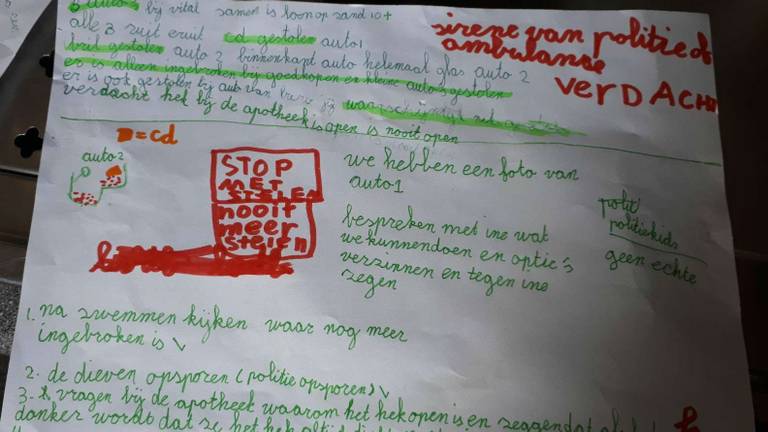 3 auto's bij vital samen is loon op sand 10+
alle 3 ruit eruit cd gestolen auto1
bril gestolen auto 2 binnenkant auto helemaal glas auto 2
er is alleen ingebroken bij goedkopen en kleine auto's gestolen
er is ook gestolen bij auto van
verdacht hek bij de apotheek is open is nooit open
sirene van politie of
ambulanse
VERDACHT
D=cd
auto2
STOP
MET
STELEN
nooit
meer
stelen
we hebben een foto van
auto1
bespreken met ine wat
we kunnen doen en optie's
verzinnen en tegen ine
zegen
polit/
politiekids
geen echte
1. na zwemmen kijken waar nog meer
ingebroken is
2. de dieven opsporen (politie opsporen)
3. vragen bij de apotheek waarom het hek open is en zeggen dat als het
donker wordt dat ze het hek altijd